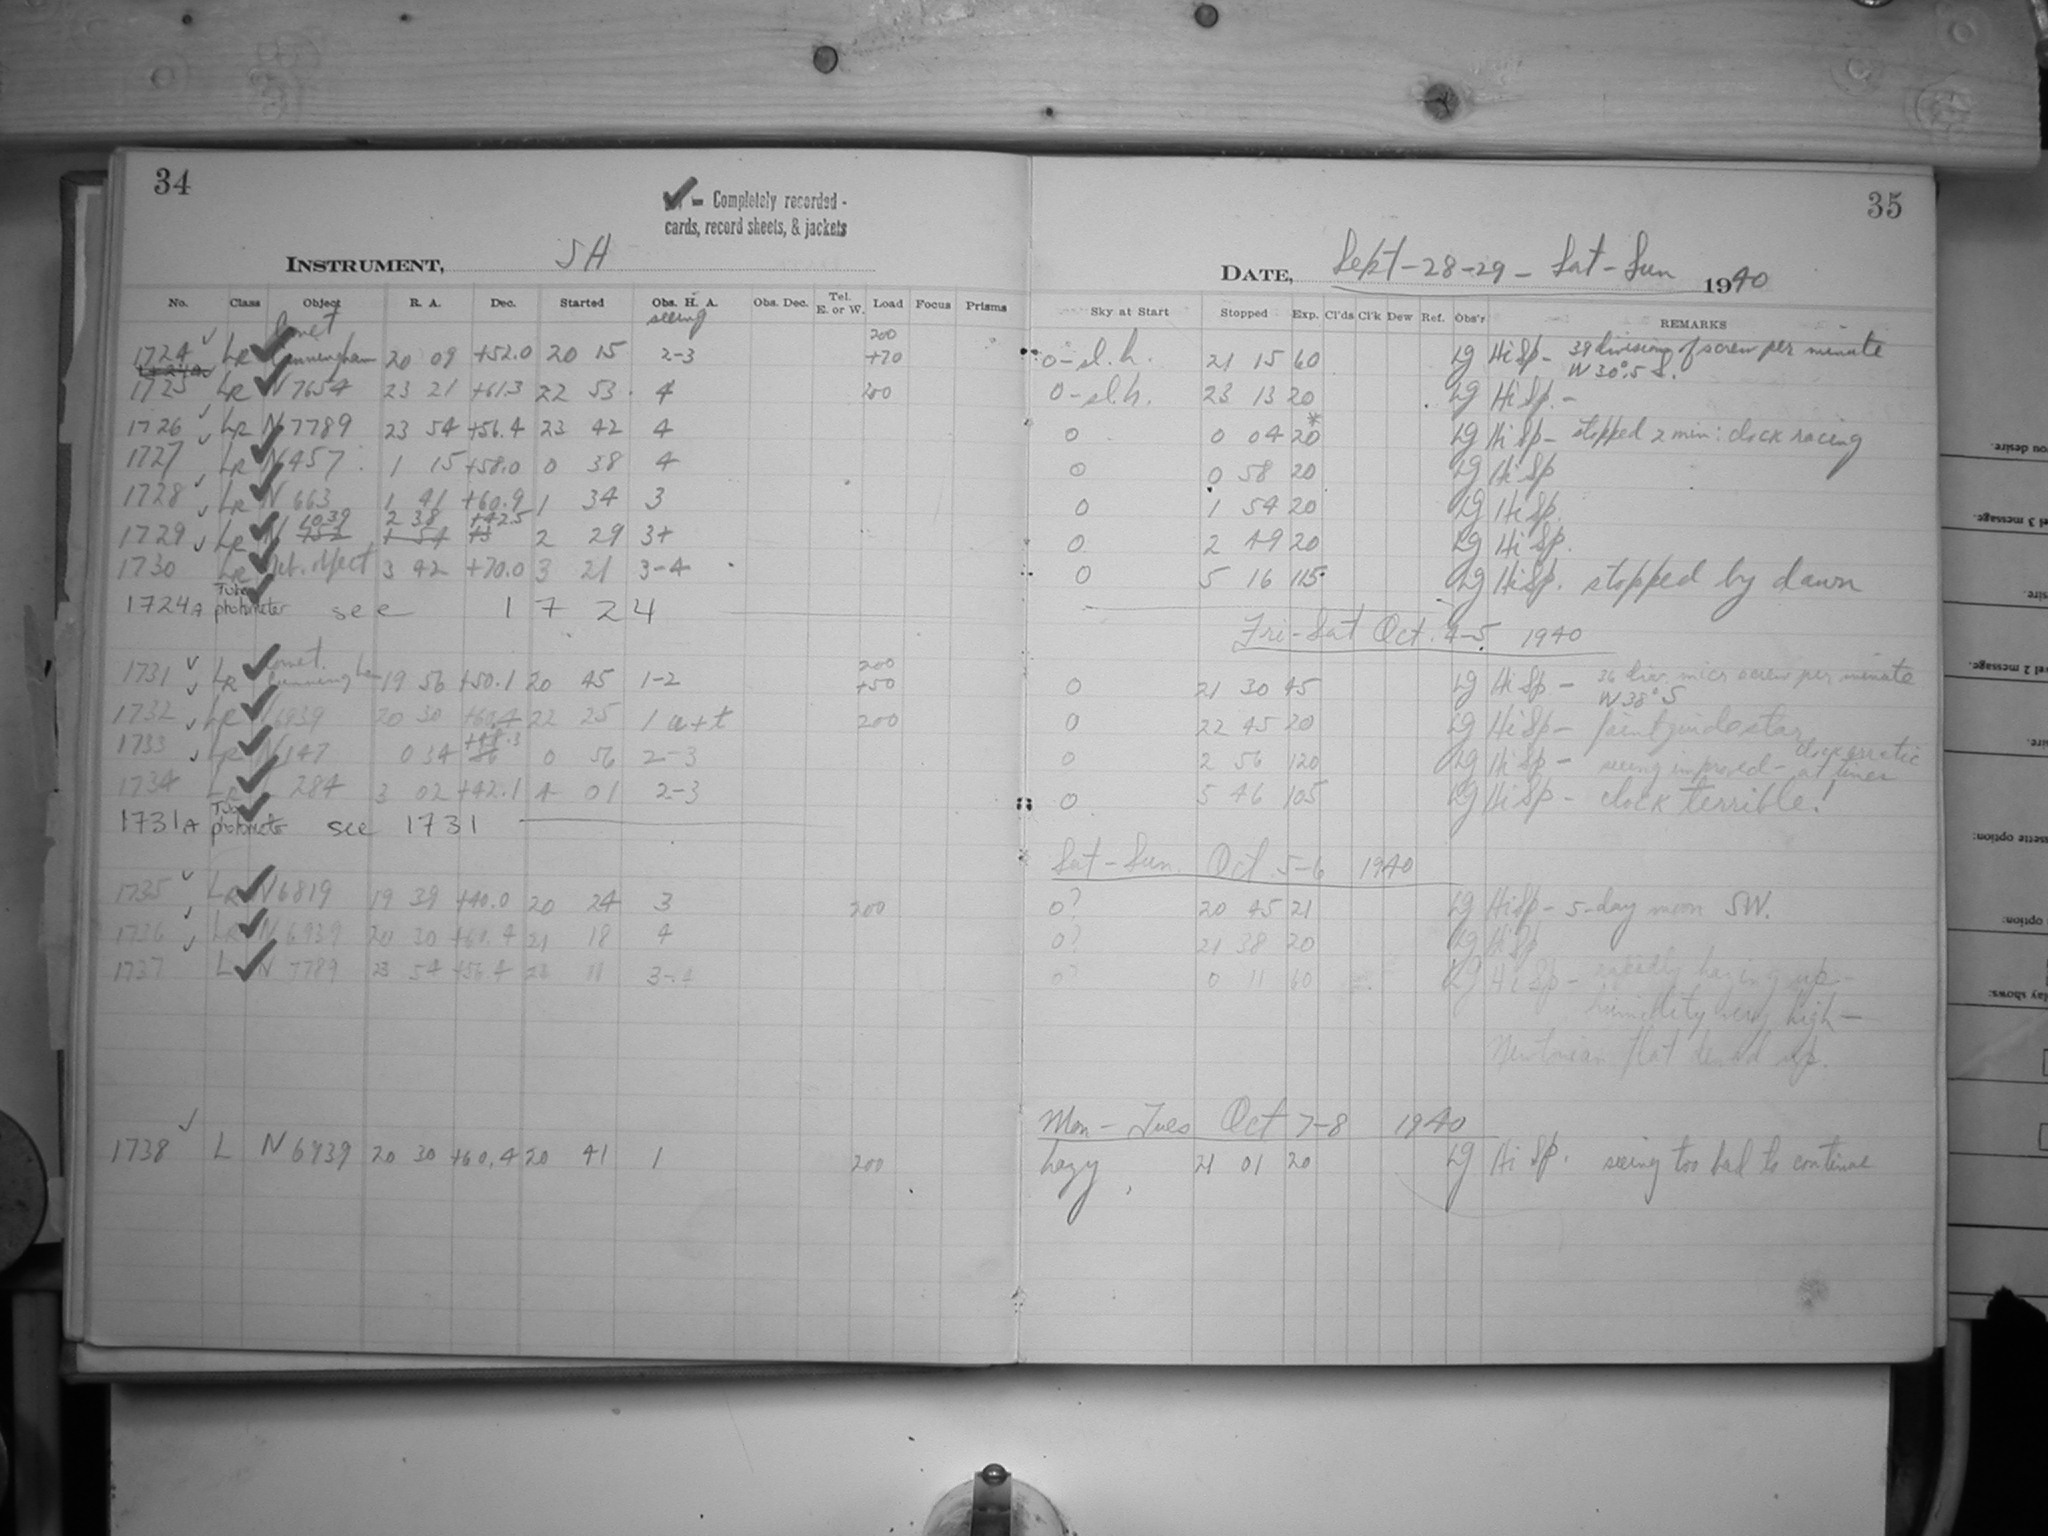 34
✓ - Completely recorded -
cards, record sheets, & jackets
INSTRUMENT, JH
No. Class Object R. A. Dec. Started Obs. H. A. Obs. Dec. Tel. E. or W. Load Focus Prisms
seeing
1724 LR Comet Cunningham 20 09 +52.0 20 15 2-3 200 +70
1725 LR N 7654 23 21 +61.3 22 53 4 200
1726 LR N 7789 23 54 +56.4 23 42 4
1727 LR N 457 1 15 +58.0 0 38 4
1728 LR N 663 1 41 +60.9 1 34 3
1729 LR N 1039 2 38 +42.5 2 29 3+
1730 LR object 3 42 +70.0 3 21 3-4
1724A Tube photometer see 1724
1731 LR Comet Cunningham 19 56 +50.1 20 45 1-2 200 +50
1732 LR N 6939 20 30 +60.4 22 25 1 a+t 200
1733 LR N 147 0 34 +48.3 0 56 2-3
1734 LR 284 3 02 +42.1 4 01 2-3
1731A Tube photometer see 1731
1735 LR N 6819 19 39 +40.0 20 24 3 200
1736 LR N 6939 20 30 +60.4 21 18 4
1737 L N 7789 23 54 +56.4 23 11 3-4
1738 L N 6939 20 30 +60.4 20 41 1 200
35
DATE, Sept-28-29- Sat-Sun 1940
Sky at Start Stopped Exp. Cl'ds Cl'k Dew Ref. Obs'r REMARKS
0-sl.h. 21 15 60 Lg Hi Sp- 38 divisions of screw per minute
W 30°.5 S.
0-sl.h. 23 13 20 Lg Hi Sp.-
0 0 04 20* Lg Hi Sp- stopped 2 min: clock racing
0 0 58 20 Lg Hi Sp
0 1 54 20 Lg Hi Sp.
0 2 49 20 Lg Hi Sp.
0 5 16 115 Lg Hi Sp. stopped by dawn
Fri-Sat Oct. 4-5 1940
0 21 30 45 Lg Hi Sp- 36 div. micr screw per minute
W 38° S
0 22 45 20 Lg Hi Sp- faint guide star
0 2 56 120 Lg Hi Sp- seeing improved- clock erratic at times
0 5 46 105 Lg Hi Sp- clock terrible!
Sat-Sun. Oct. 5-6 1940
0? 20 45 21 Lg Hi Sp- 5-day moon SW.
0? 21 38 20 Lg Hi Sp
0? 0 11 60 Lg Hi Sp- rapidly hazing up-
humidity very high-
Newtonian flat dewed up.
Mon- Tues Oct 7-8 1940
hazy 21 01 20 Lg Hi Sp. seeing too bad to continue
you desire.
el 3 message.
sire.
vel 2 message.
sire.
ssette option:
option:
play shows: